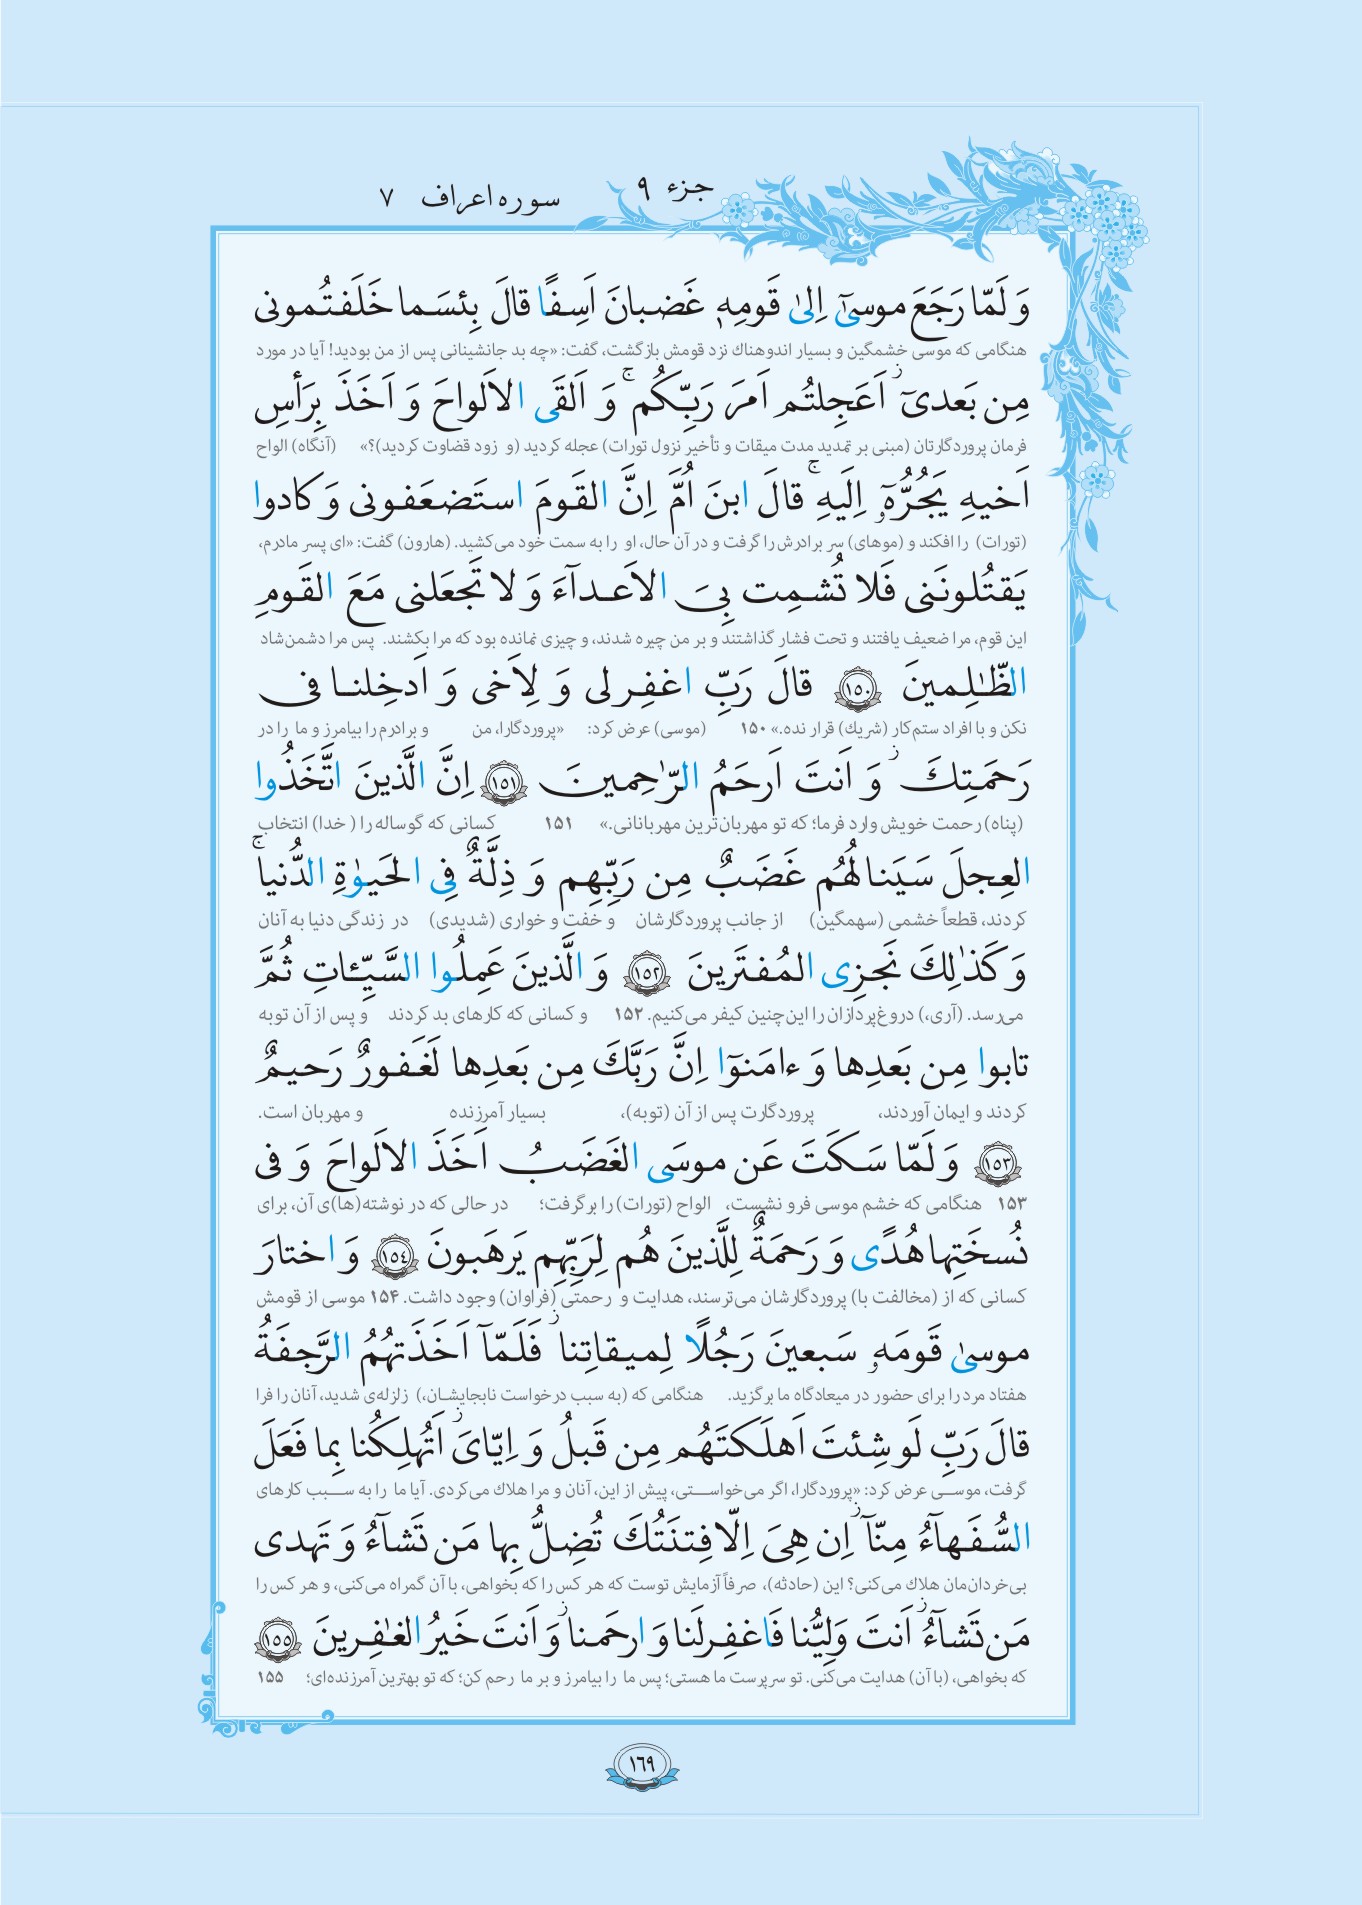 جزء ۹
سوره اعراف ۷
وَ لَمّا رَجَعَ موسىٰٓ اِلىٰ قَومِهٖ غَضبانَ اَسِفًا قالَ بِئسَما خَلَفتُمونى
هنگامی که موسی خشمگین و بسیار اندوهناک نزد قومش بازگشت، گفت: «چه بد جانشینانی پس از من بودید! آیا در مورد
مِن بَعدىٓ ز اَعَجِلتُم اَمرَ رَبِّكُم ۚ وَ اَلقَى الاَلواحَ وَ اَخَذَ بِرَأسِ
فرمان پروردگارتان (مبنی بر تمدید مدت میقات و تأخیر نزول تورات) عجله کردید (و زود قضاوت کردید)؟» (آنگاه) الواح
اَخيهِ يَجُرُّهٗٓ اِلَيهِ ۚ قالَ ابنَ اُمَّ اِنَّ القَومَ استَضعَفونى وَ كادوا
(تورات) را افکند و (موهای) سر برادرش را گرفت و در آن حال، او را به سمت خود می‌کشید. (هارون) گفت: «ای پسر مادرم،
يَقتُلونَنى فَلا تُشمِت بِىَ الاَعدآءَ وَ لا تَجعَلنى مَعَ القَومِ
این قوم، مرا ضعیف یافتند و تحت فشار گذاشتند و بر من چیره شدند، و چیزی نمانده بود که مرا بکشند. پس مرا دشمن‌شاد
الظّٰلِمينَ ١٥٠ قالَ رَبِّ اغفِر لى وَ لِاَخى وَ اَدخِلنا فى
نکن و با افراد ستم‌کار (شریک) قرار نده.» ۱۵۰ (موسی) عرض کرد: «پروردگارا، من و برادرم را بیامرز و ما را در
رَحمَتِكَ ز وَ اَنتَ اَرحَمُ الرّٰحِمينَ ١٥١ اِنَّ الَّذينَ اتَّخَذُوا
(پناه) رحمت خویش وارد فرما؛ که تو مهربان‌ترین مهربانانی.» ۱۵۱ کسانی که گوساله را ( خدا) انتخاب
العِجلَ سَيَنالُهُم غَضَبٌ مِن رَبِّهِم وَ ذِلَّةٌ فِى الحَيوٰةِ الدُّنيا ۚ
کردند، قطعاً خشمی (سهمگین) از جانب پروردگارشان و خفت و خواری (شدیدی) در زندگی دنیا به آنان
وَ كَذٰلِكَ نَجزِى المُفتَرينَ ١٥٢ وَ الَّذينَ عَمِلُوا السَّيِّـٔاتِ ثُمَّ
می‌رسد. (آری،) دروغ‌پردازان را این‌چنین کیفر می‌کنیم. ۱۵۲ و کسانی که کارهای بد کردند و پس از آن توبه
تابوا مِن بَعدِها وَ ءامَنوٓا اِنَّ رَبَّكَ مِن بَعدِها لَغَفورٌ رَحيمٌ
کردند و ایمان آوردند، پروردگارت پس از آن (توبه)، بسیار آمرزنده و مهربان است.
١٥٣ وَ لَمّا سَكَتَ عَن موسَى الغَضَبُ اَخَذَ الاَلواحَ وَ فى
۱۵۳ هنگامی که خشم موسی فرو نشست، الواح (تورات) را برگرفت؛ در حالی که در نوشته(ها)ی آن، برای
نُسخَتِها هُدًى وَ رَحمَةٌ لِلَّذينَ هُم لِرَبِّهِم يَرهَبونَ ١٥٤ وَ اختارَ
کسانی که از (مخالفت با) پروردگارشان می‌ترسند، هدایت و رحمتی (فراوان) وجود داشت. ۱۵۴ موسی از قومش
موسىٰ قَومَهٗ سَبعينَ رَجُلًا لِميقاتِنا ز فَلَمّآ اَخَذَتهُمُ الرَّجفَةُ
هفتاد مرد را برای حضور در میعادگاه ما برگزید. هنگامی که (به سبب درخواست نابجایشان،) زلزله‌ی شدید، آنان را فرا
قالَ رَبِّ لَو شِئتَ اَهلَكتَهُم مِن قَبلُ وَ اِيّاىَ ز اَتُهلِكُنا بِما فَعَلَ
گرفت، موسی عرض کرد: «پروردگارا، اگر می‌خواستی، پیش از این، آنان و مرا هلاک می‌کردی. آیا ما را به سبب کارهای
السُّفَهآءُ مِنّآ ز اِن هِىَ اِلّا فِتنَتُكَ تُضِلُّ بِها مَن تَشآءُ وَ تَهدى
بی‌خردان‌مان هلاک می‌کنی؟ این (حادثه)، صرفاً آزمایش توست که هر کس را که بخواهی، با آن گمراه می‌کنی، و هر کس را
مَن تَشآءُ ز اَنتَ وَلِيُّنا فَاغفِر لَنا وَ ارحَمنا ز وَ اَنتَ خَيرُ الغٰفِرينَ ١٥٥
که بخواهی، (با آن) هدایت می‌کنی. تو سرپرست ما هستی؛ پس ما را بیامرز و بر ما رحم کن؛ که تو بهترین آمرزنده‌ای؛ ۱۵۵
١٦٩